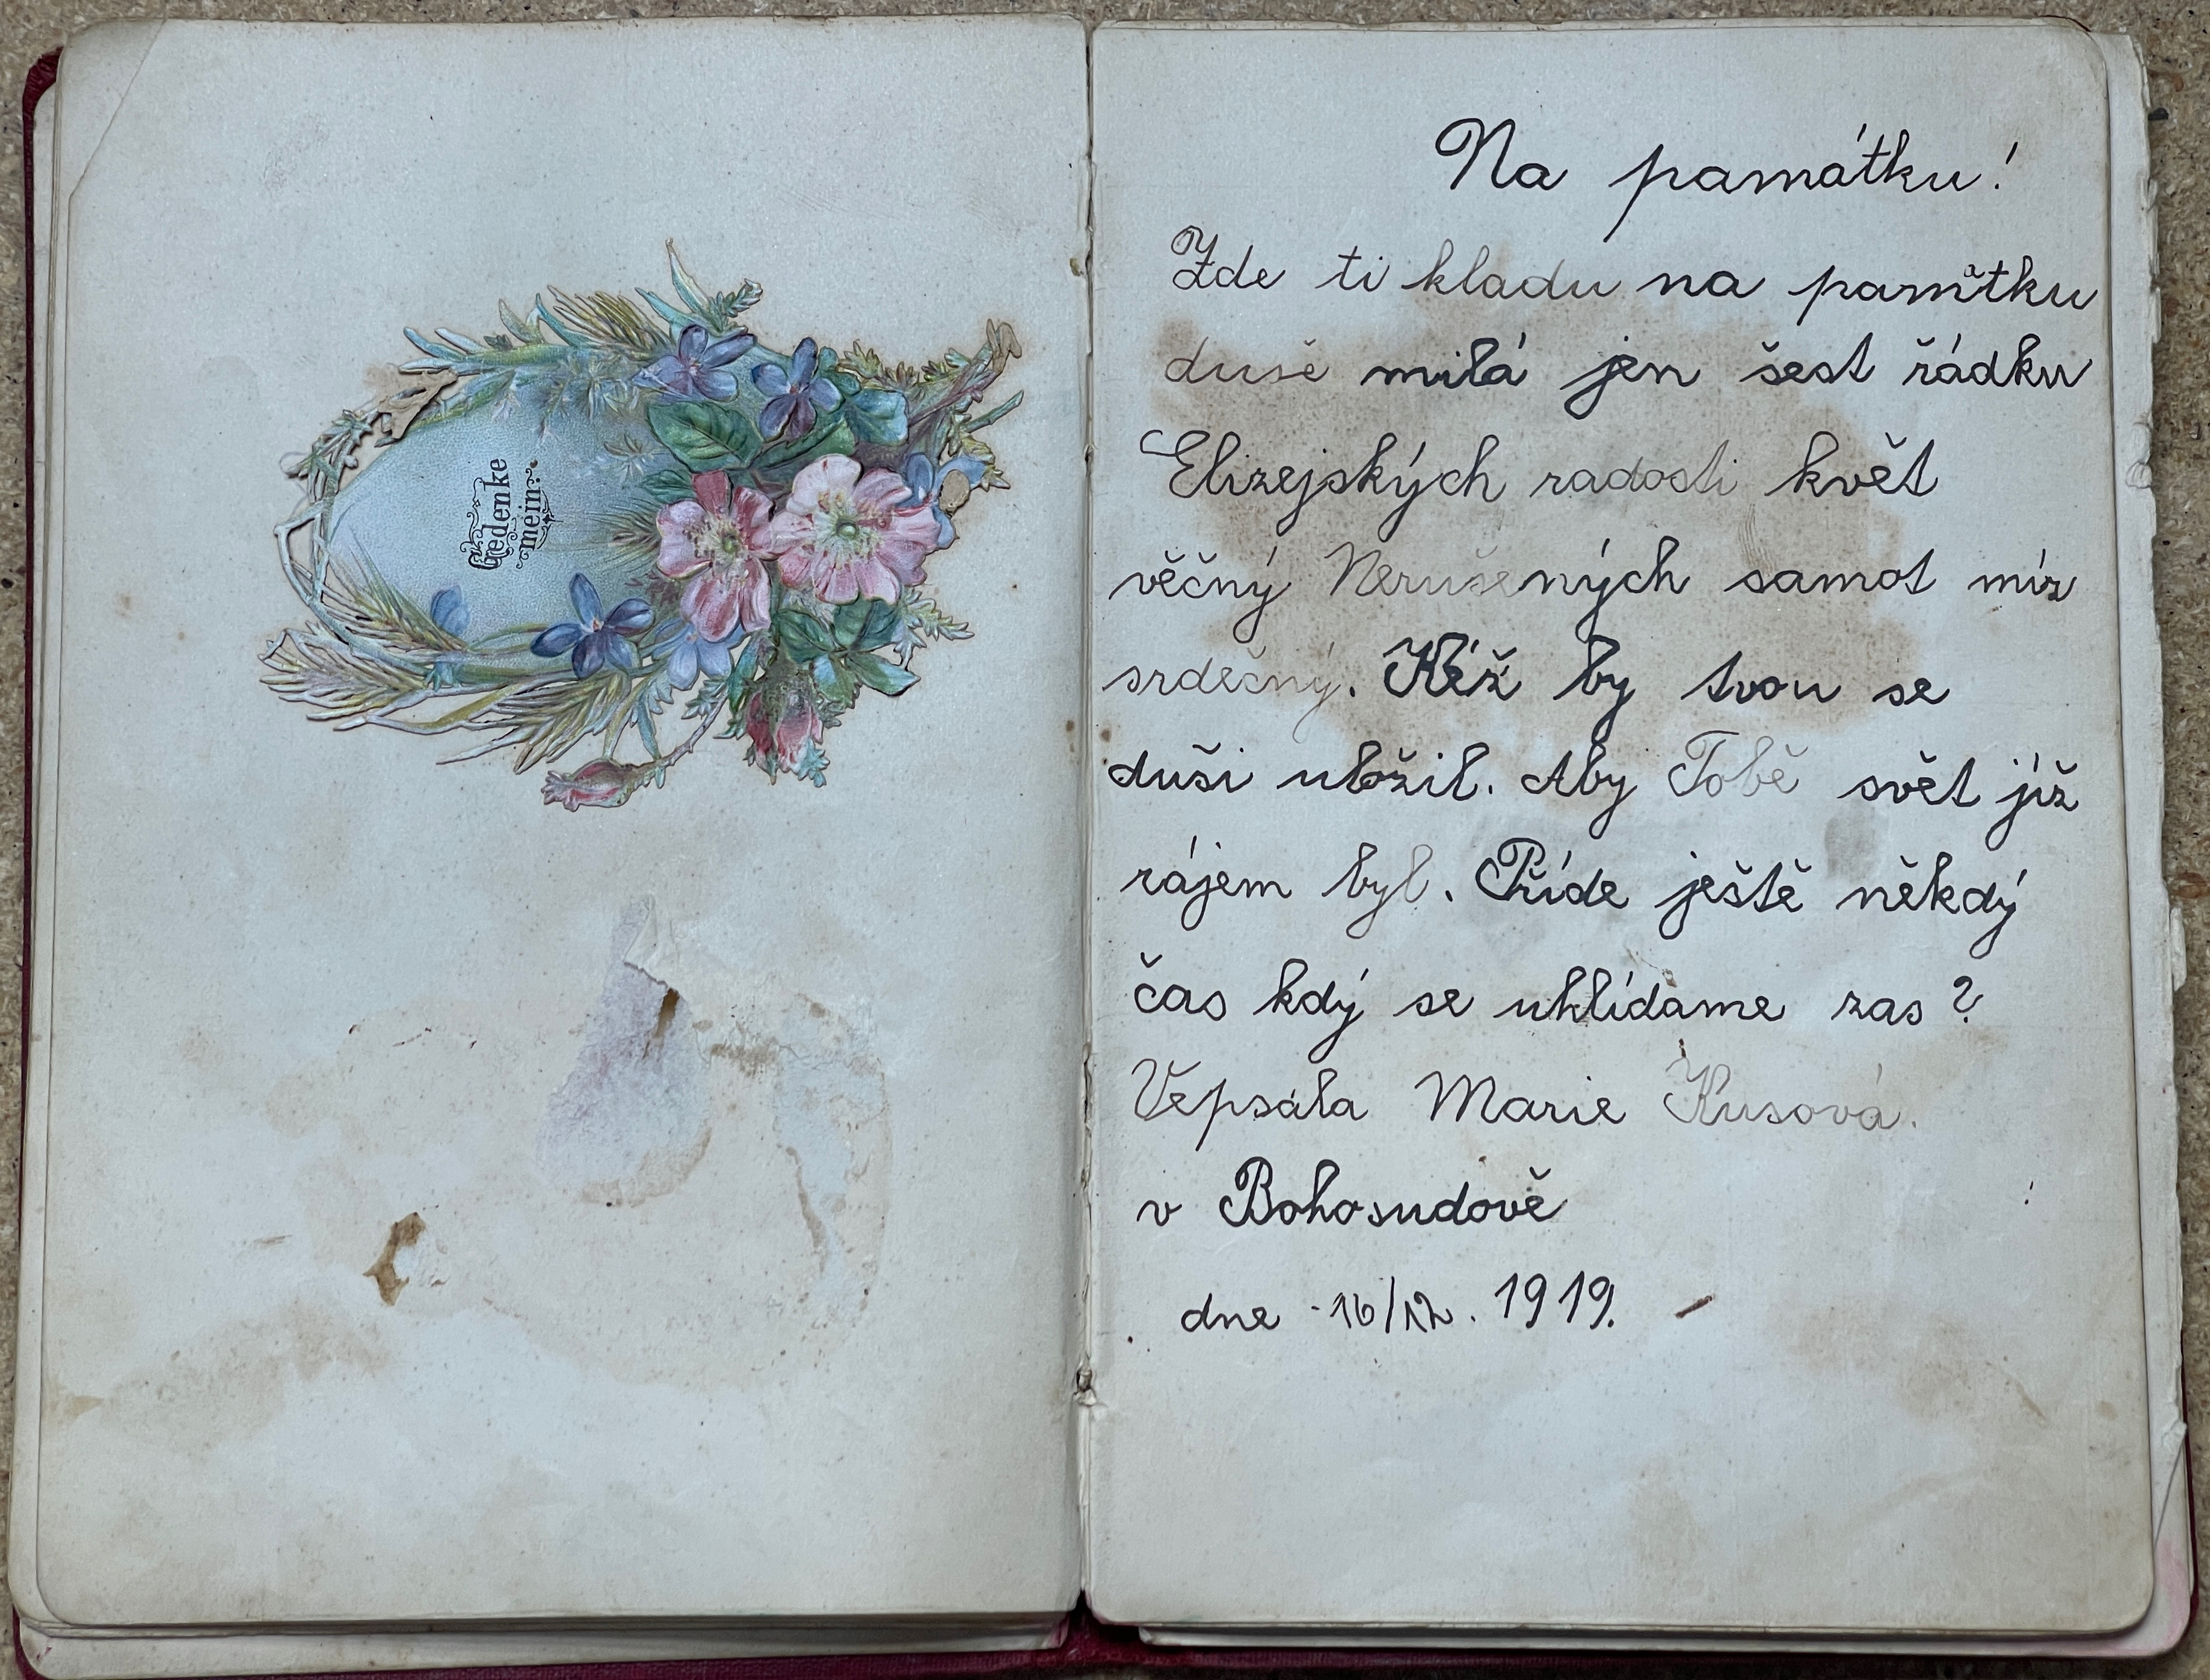 Gedenke
mein.
Na památku!
Zde ti kladu na památku
duše milá jen šest řádku
Elizejských radosti květ
věčný Nerušených samot mír
srdečný. Kéž by tvou se
duši uložil. Aby Tobě svět již
rájem byl. Příde ještě někdý
čas kdý se uhlídame zas?
Vepsála Marie Kusová.
v Bohosudově
dne 16/12. 1919.